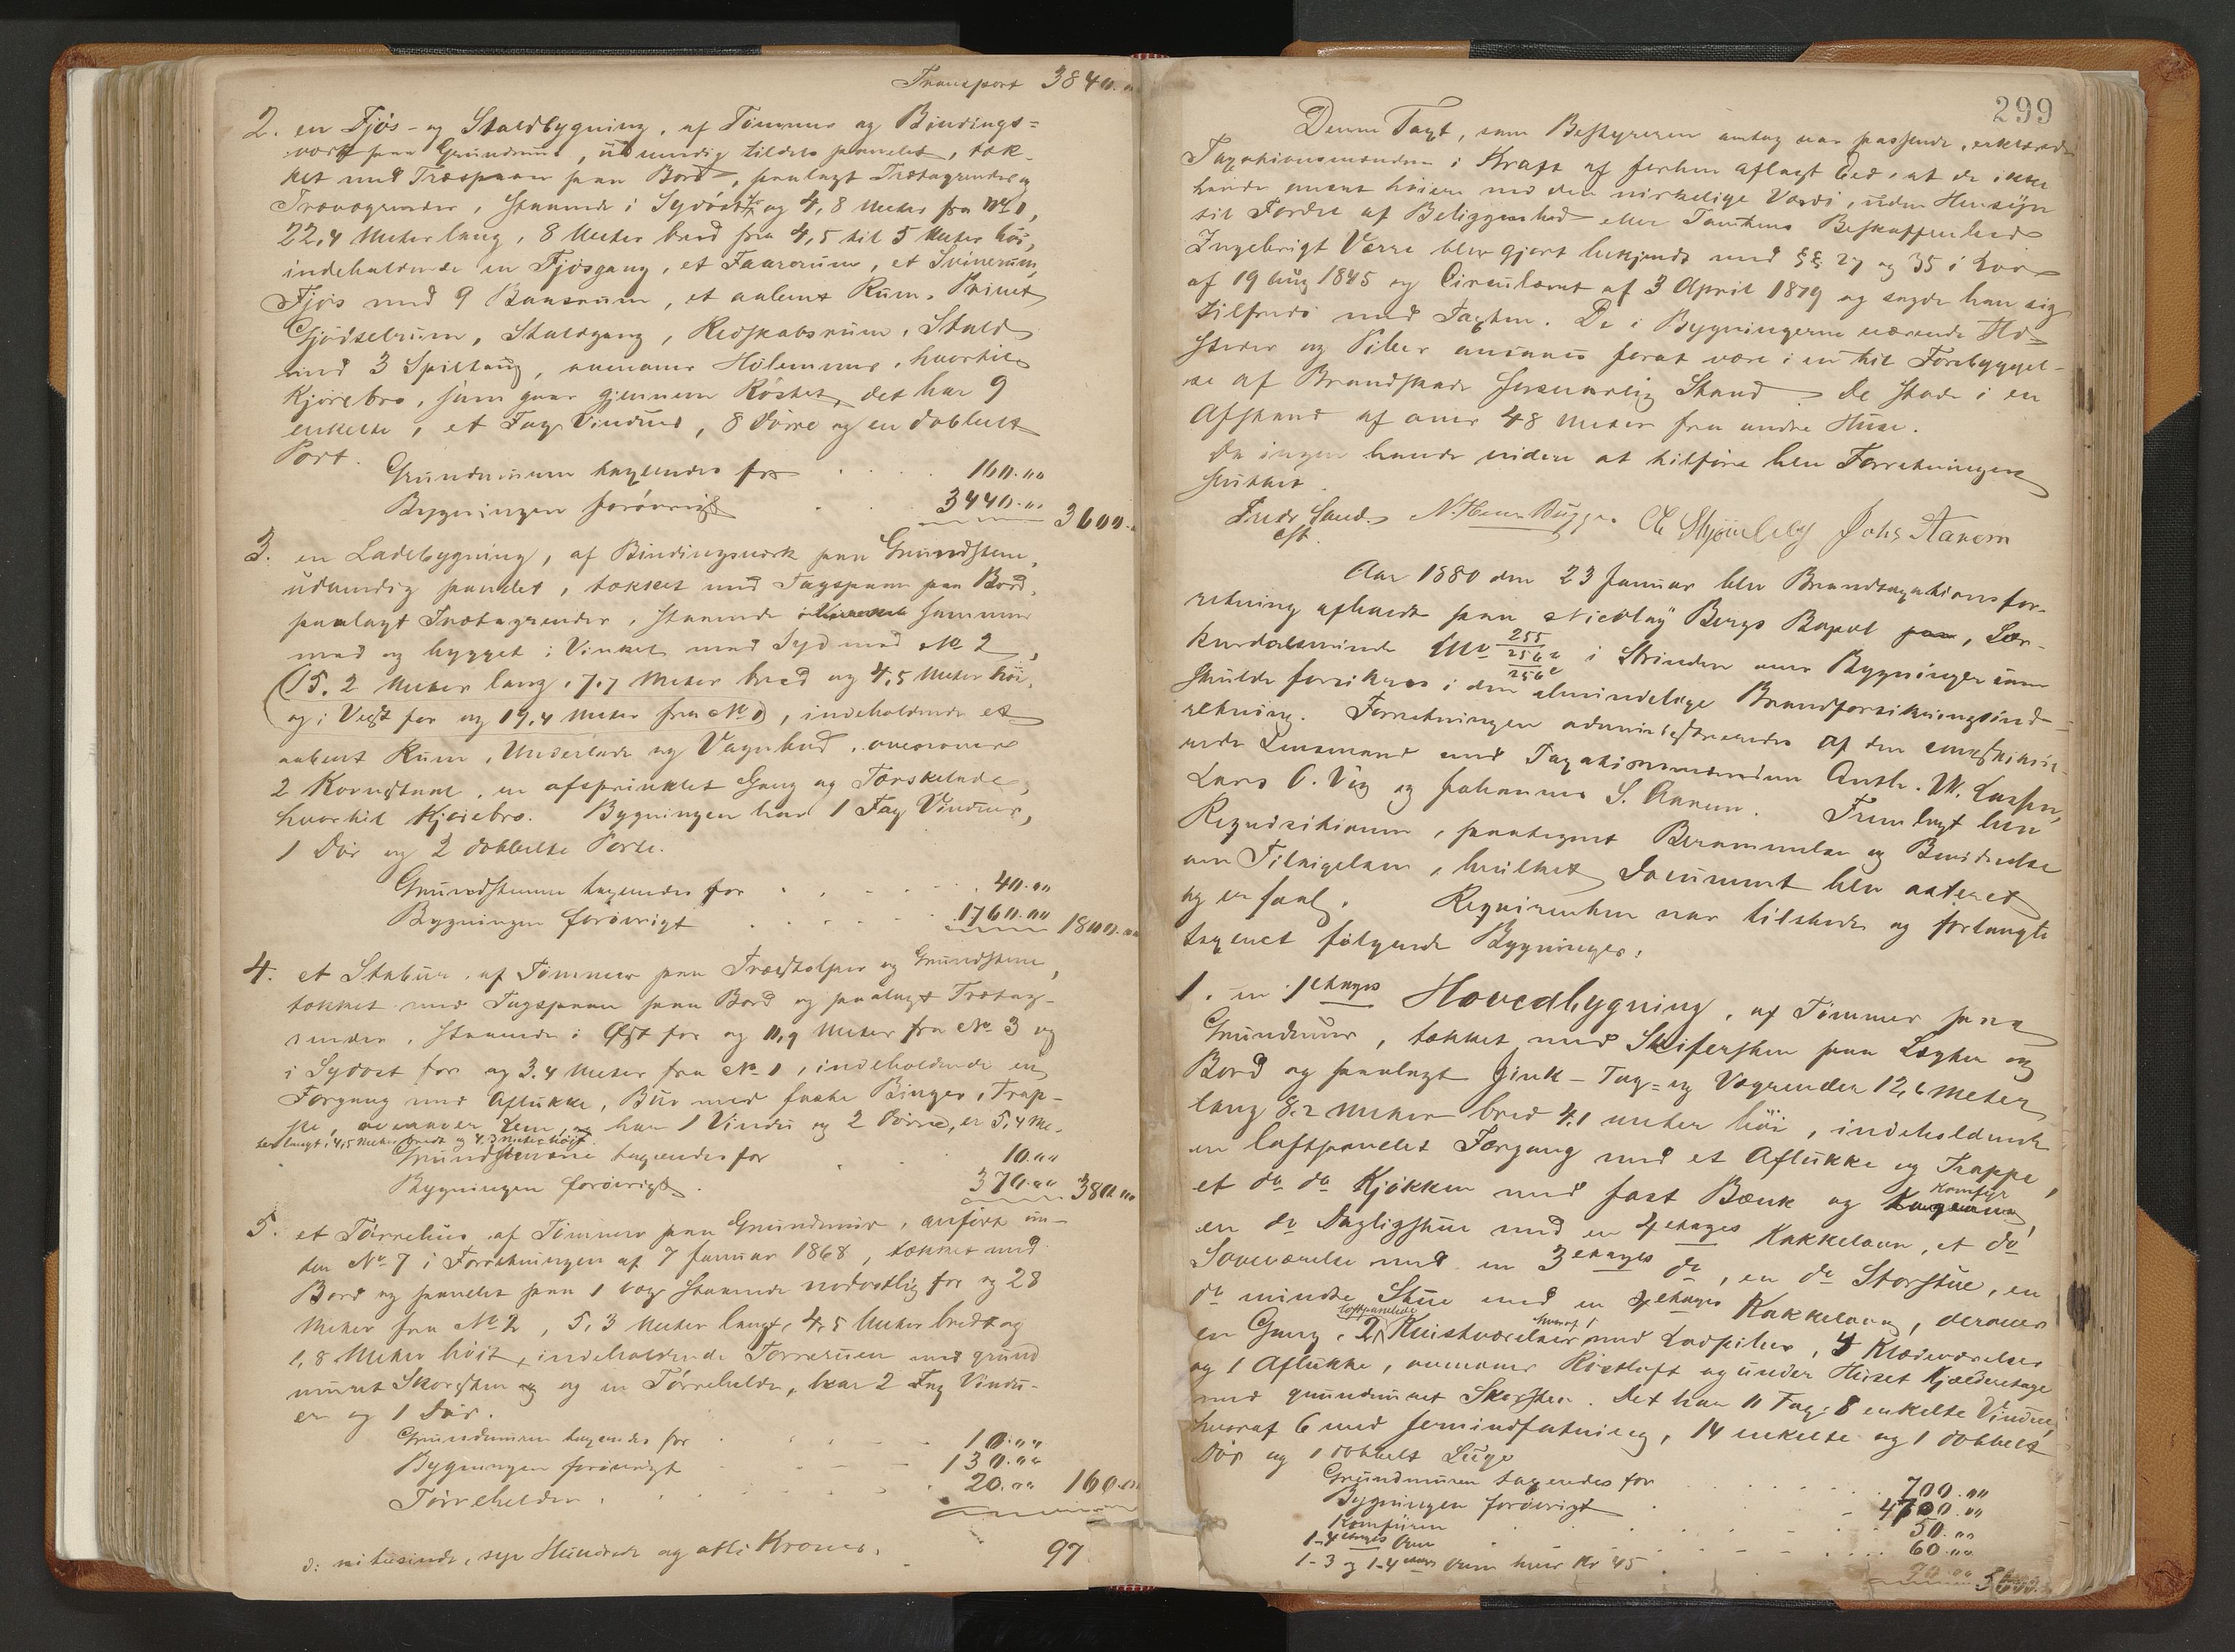 Transport 3840.
2. en Fjös- og Staldbygning, af Tömmer og Bindings=
værk paa Grundmur, udvendig tildels panelet, tæk-
ket med Træspaan paa Bord, paalagt Trætagrender og
Trævagrender, staaende i Sydöst for og 4,8 Meter fra No 1,
22,4 Meter lang, 8 Meter bred fra 4,5 til 5 Meter höi,
indeholdende en Fjösgang, et Faarerum, et Svinerum,
Fjös med 9 Baaserum, et aabent Rum, Privet
Gjödselrum, Staldgang, Redskabsrum, Stald
med 3 Spiltoug, ovenover Hölemmer, hvortil
Kjörebro, som gaar gjennem Röstet, det har 9
enkelte, et Fag Vinduer, 8 Dörre og en dobbelt
Port.
Grundmuren taxeredes for 160.00
Bygningen forövrigt 3440.00 3600.
3. en Ladebygning, af Bindingsværk paa Grundstene,
udvendig panelet, tækket med Tagspaan paa Bord,
paalagt Trætagrender, staaende i sammen
med og bygget i Vinkel mod Syd med No 2,
(15.2 Meter lang, 7,7 Meter bred og 4,5 Meter höi,
og i Vest for og 19,4 Meter fra No 1), indeholdende et
aabent Rum, Underlade og Vognbod, ovenover
2 Kornstaal, en afsprinklet Gang og Torskelade,
hvortil Kjörebro. Bygningen har 1 Fag Vinduer,
1 Dör og 2 dobbelte Porte.
Grundstenene taxeredes for 40.00
Bygningen forövrigt 1760.00 1800.00
4. et Stabur, af Tömmer paa Træstolper og Grundstene,
tækket med Tagspaan paa Bord og paalagt Trætag-
render, staaende i Öst for og 11,9 Meter fra No 3 og
i Sydost for og 3.4 Meter fra No 1, indeholdende en
Forgang med Aflukke, Bur med faste Binger, Trap-
pe, ovenover Rum, og har 1 Vindu og 2 Dörre, er 5,4 Me-
ter langt, 4,5 Meter bredt og 4.3 Meter höjt.
Grundstenene taxeredes for 10.00
Bygningen forövrigt 370.00 380.00
5. et Törrehus af Tömmer paa Grundmur, anfört un-
der No 7 i Forretningen af 7 Januar 1868, tækket med
Bord og panelet paa 1 Væg staaende nordostlig for og 28
Meter fra No 2, 5,3 Meter langt, 4,5 Meter bredt og
1,8 Meter höit, indeholdende Törrerum med grund
muret Skorsten og en Törrehelde, har 2 Fag Vindu-
er og 1 Dör.
Grundmuren taxeredes for 10.00
Bygningen forövrigt 130.00
Törrehelden 20.00 160.00
ɔ: ni tusinde, syv Hundrede og otti Kroner. 97
299
Denne Taxt, som Bestyreren antog var passende, erklærede
Taxationsmændene i Kraft af forhen aflagt Eed, at de ikke
havde ansat höiere end den virkelige Værdi, uden Hensyn
til Fordel af Beliggenhed eller Tomtens Beskaffenhed
Ingebrigt Værre blev gjort bekjendt med §§ 27 og 35 i Lov
af 19 Aug 1845 og Circulæret af 3 April 1879 og sagde han sig
tilfreds med Taxten. De i Bygningerne værende Ild-
steder og Piber ansaaes forat være i en til Forebyggel-
se af Brandskade forsvarlig Stand. De stode i en
Afstand af over 48 Meter fra andre Huse.
Da ingen havde videre at tilföre blev Forretningen
sluttet.
Fredr Sand N. Henr Bügge. Joh. S Aanem
cst.
Aar 1880 den 23 Januar blev Brandtaxationsfor-
retning afholdt paa Nicolay Bergs Bopæl, Ler-
kendalsminde Mo 255 256 a 256 c i Strinden over Bygninger som
skulde forsikres i den almindelige Brandforsikringsind-
retning. Forretningen administreredes af den constitue-
rede Lensmand med Taxationsmændene Anth. M. Larsen,
Lars O. Vig og Johannes S. Aanem. Fremlagt blev
Requisitionen, paategnet Berammelse og Bevidnelse
om Tilsigelsen, hvilket Document blev oplæst
og er saal. Requirenten var tilstede og forlangte
taxeret fölgende Bygninger:
1. en 1 etages Hovedbygning, af Tömmer paa
Grundmur, tækket med Skifersten paa Lægter og
Bord og paalagt Zink-Tag- og Vagrender 12,6 Meter
lang 8.2 Meter bred 4.1 Meter höi, indeholdende
en loftpanelet Forgang med et Aflukke og Trappe,
et do do Kjökken med fast Bænk og Komfyr
en do Dagligstue med en 4 etages Kakkelovn, et do
Soveværelse med en 3 etages do, en do Storstue, en
do mindre Stue med en 4 etages Kakkelovn, derover
en Gang, 2 loftpanelede Kvistværelser hvoraf 1 med Lodpiber, 4 Klædeværelser
og 1 Aflukke, ovenover Röstloft og under Huset Kjælderetage
med grundmuret Skorsten. Det har 11 Fag: 8 enkelte Vinduer,
hvoraf 6 med Jernindfatning, 14 enkelte og 1 dobbelt
Dör og 1 dobbelt Luge
Grundmuren taxeredes for 700.00
Bygningen forövrigt 4700.00
Komfüren 50.00
1-4 etages Ovn 60.00
1-3 og 1-4 etages Ovn hver Kr 45 90.00 5600.